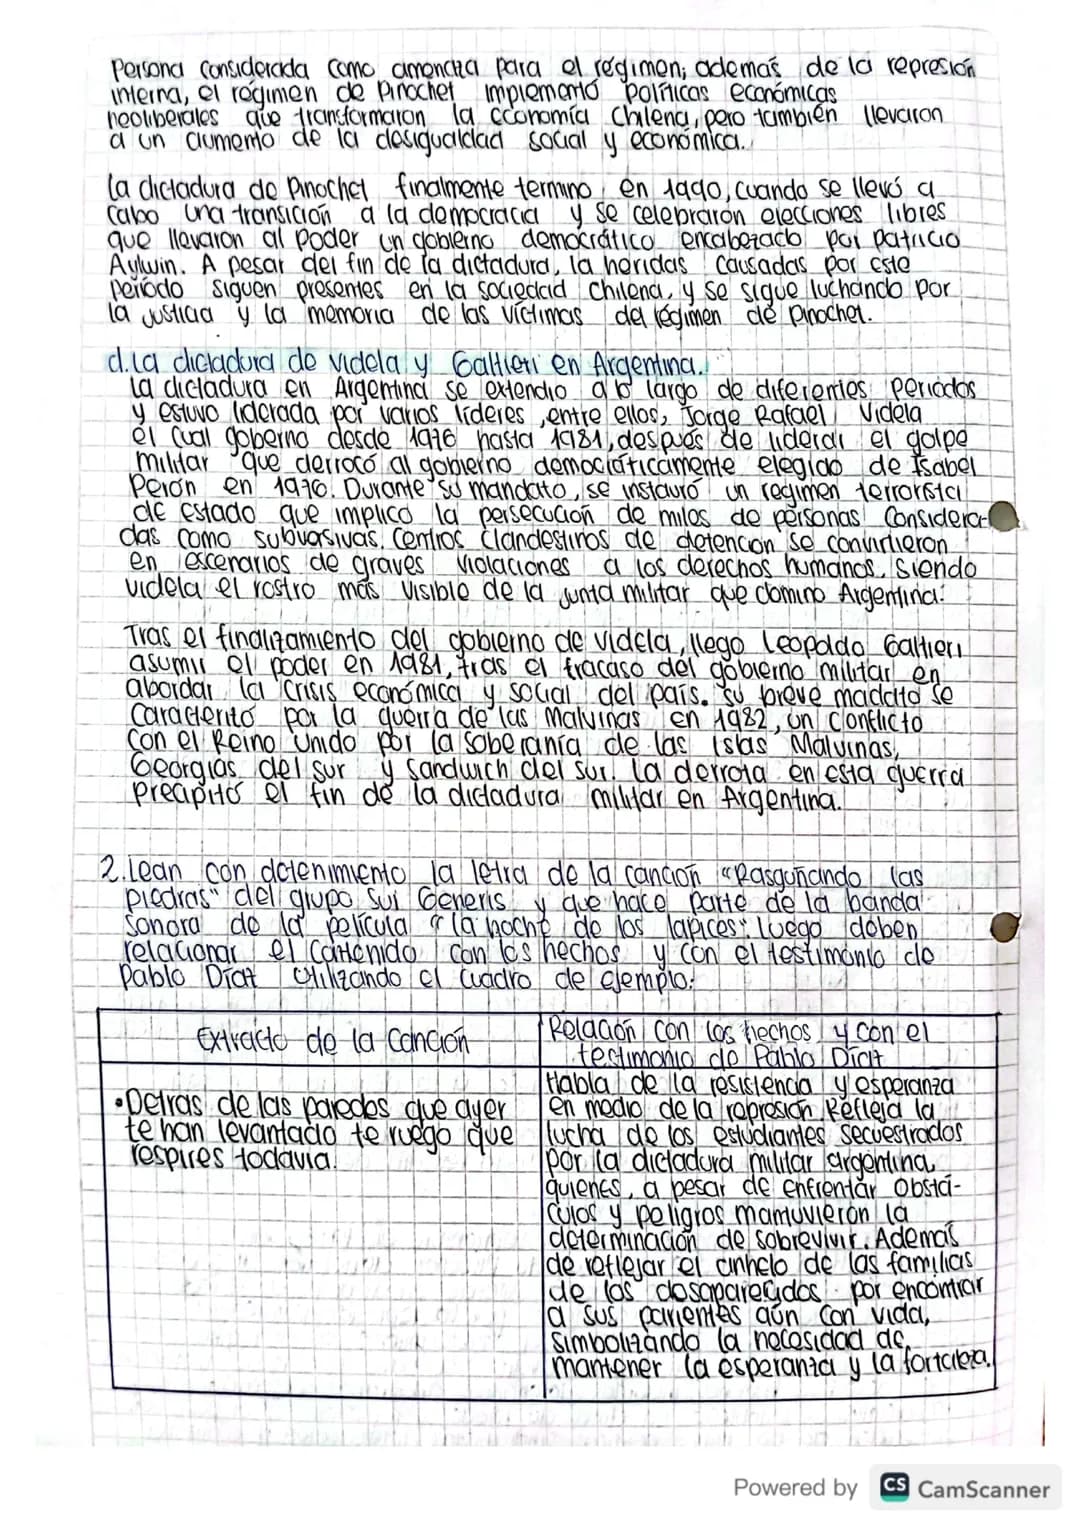 Persona considerada como amenaza para el régimen; además de la represión
interna, el régimen de Pinochet implementó políticas económicas
neoliberales que transformaron la economía Chilena, pero también llevaron
a un aumento de la desigualdad social y económica.
la dictadura de Pinochet finalmente termino en 1990, cuando se llevó a
cabo una transición a la democracia y se celebraron elecciones libres
que llevaron al poder un gobierno democrático encabezado por Patricio
Aylwin. A pesar del fin de la dictadura, la heridas causadas por este
período siguen presentes en la sociedad chilena, y se sigue luchando por
la justicia y la memoria de las víctimas del régimen de Pinochet.
d. La dictadura de Videla y Galtieri en Argentina.
La dictadura en Argentina se extendio a lo largo de diferentes periodos
y estuvo liderada por varios líderes, entre ellos, Jorge Rafael Videla
el cual goberno desde 1976 hasta 1981, después de liderar el golpe
militar que derrocó al gobierno democráticamente elegido de Isabel
Perón en 1976. Durante su mandato, se instauró un regimen terrorista
de Estado que implico la persecución de miles de personas Considera
das como subversivas. Centros Clandestinos de detencion se convirtieron
en escenarios de graves violaciones a los derechos humanos. Siendo
videla el rostro más visible de la junta militar que domino Argentina.
Tras el finalizamiento del gobierno de Videla, llego Leopoldo Galtieri
asumir el poder en 1981, tras el fracaso del gobierno militar en
abordar la crisis económica y social del país. su breve
Caracterizó por la guerra de las Malvinas en 1982, un conflicto
con el Reino Unido por la soberanía de las Islas Malvinas,
Georgias del Sur y Sandwich del sur. La derrota en esta guerra
precipitó el fin de la dictadura militar en Argentina.
2. Lean con detenimiento la letra de la canción "Rasguñando las
piedras" del grupo Sui Generis y que hace parte de la banda
sonora de la película "la noche de los lapices". Luego deben
relacionar el contenido con los hechos y con el testimonio de
Pablo Díaz utilizando el cuadro de ejemplo:
Extracto de la Canción
Relación con los hechos y con el
testimonio de Pablo Díaz
•Detras de las paredes que ayer
te han levantado te ruego que
respires todavia.
Habla de la resistencia y esperanza
en medio de la represión. Refleja la
lucha de los estudiantes secuestrados
por la dictadura militar argentina,
quienes, a pesar de enfrentar obstá-
culos y peligros mamuvieron la
determinación de sobrevivir. Además
de reflejar el anhelo de las familias
de los desaparecidos por encontrar
a sus parientes aún con vida,
simbolizando la necesidad de
mantener la esperanza y la fortaleza.
Powered by CS CamScanner